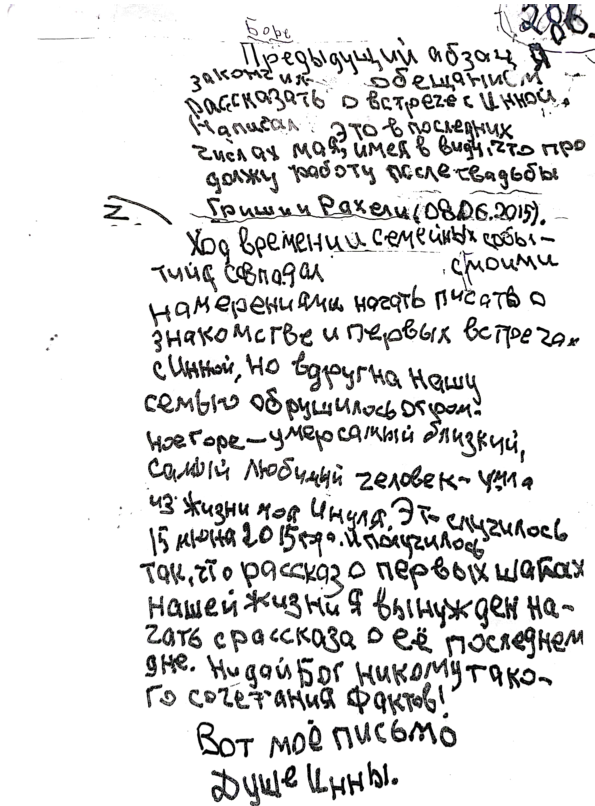 Боре
286.
Предыдущий абзац я
закончил обещанием
рассказать о встрече с Инной.
Написал это в последних
числах мая, имея в виду, что про
должу работу после свадьбы
Гриши и Рахели (08.06.2015).
Ход времени и семейных собы-
тий совпадал с моими
намерениями начать писать о
знакомстве и первых встречах
с Инной, но вдруг на нашу
семью обрушилось огром-
ное горе — умер самый близкий,
самый любимый человек - ушла
из жизни моя Инуля. Это случилось
15 июня 2015 года. И получилось
так, что рассказ о первых шагах
нашей жизни я вынужден на-
чать с рассказа о её последнем
дне. Ни дай Бог никому тако-
го сочетания фактов!
Вот моё письмо
Душе Инны.